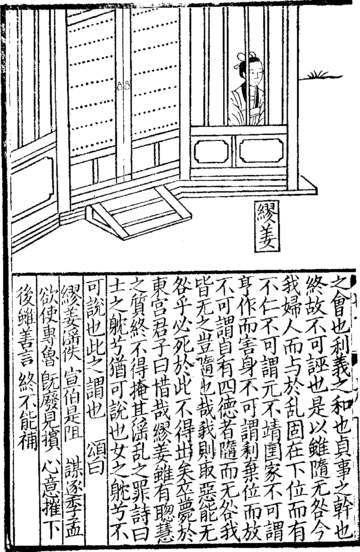 繆姜
之會也利義之和也貞事之幹也
終故不可誣也是以雖隨无咎今
我婦人而与於乱固在下位而有
不仁不可謂元不靖囯家不可謂
亨作而害身不可謂利棄位而放
不可謂貞有四德者隨而无咎我
皆无之豈隨也哉我則取惡能无
咎乎必死於此不得出矣卒薨於
東宮君子曰惜哉繆姜雖有聰慧
之質終不得掩其淫乱之罪詩曰
士之躭兮猶可說也女之躭兮不
可說也此之謂也 頌曰
繆姜淫佚 宣伯是阻 謀逐季孟
欲使專魯 既廢見擯 心意摧下
後雖善言 終不能補